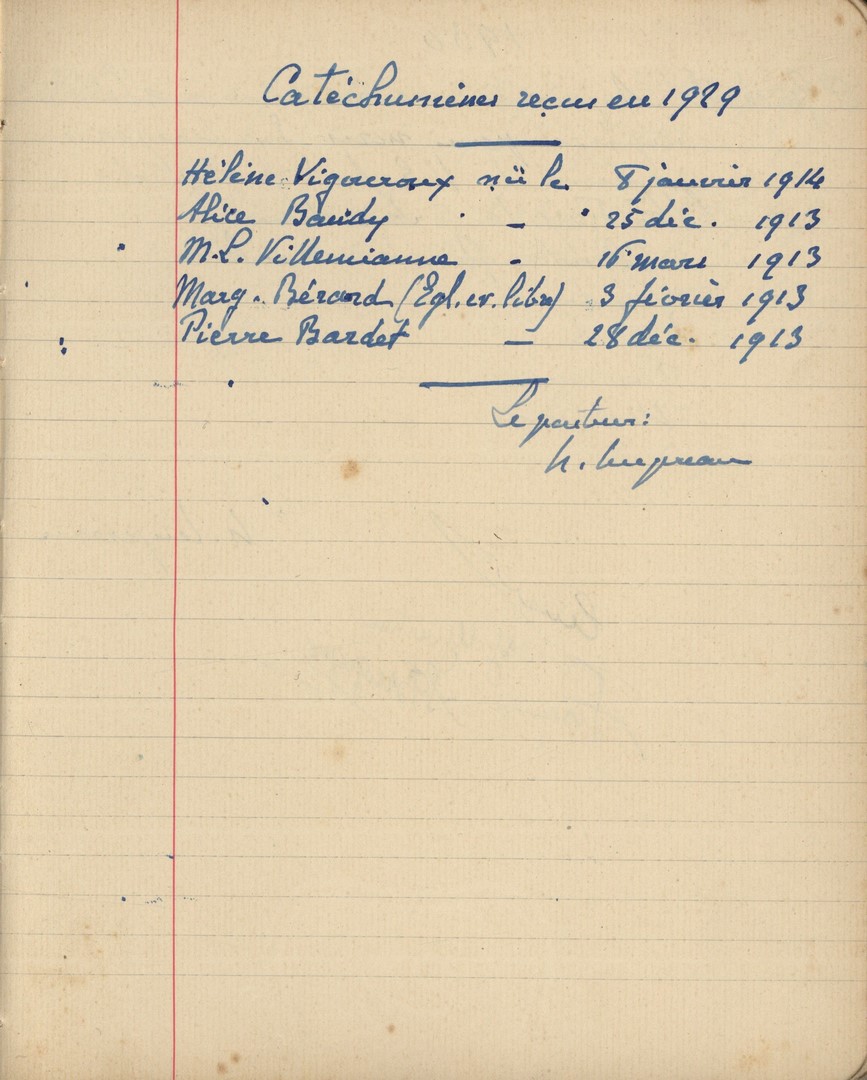 Catéchumènes reçus en 1929
Hélène Vigouroux née le 8 janvier 1914
Alice Baudy - 25 déc. 1913
M.L. Villemianne - 16 mars 1913
Marg. Bérard (Egl. ev. libre) 3 février 1913
Pierre Bardet — 28 déc. 1913
Le pasteur: